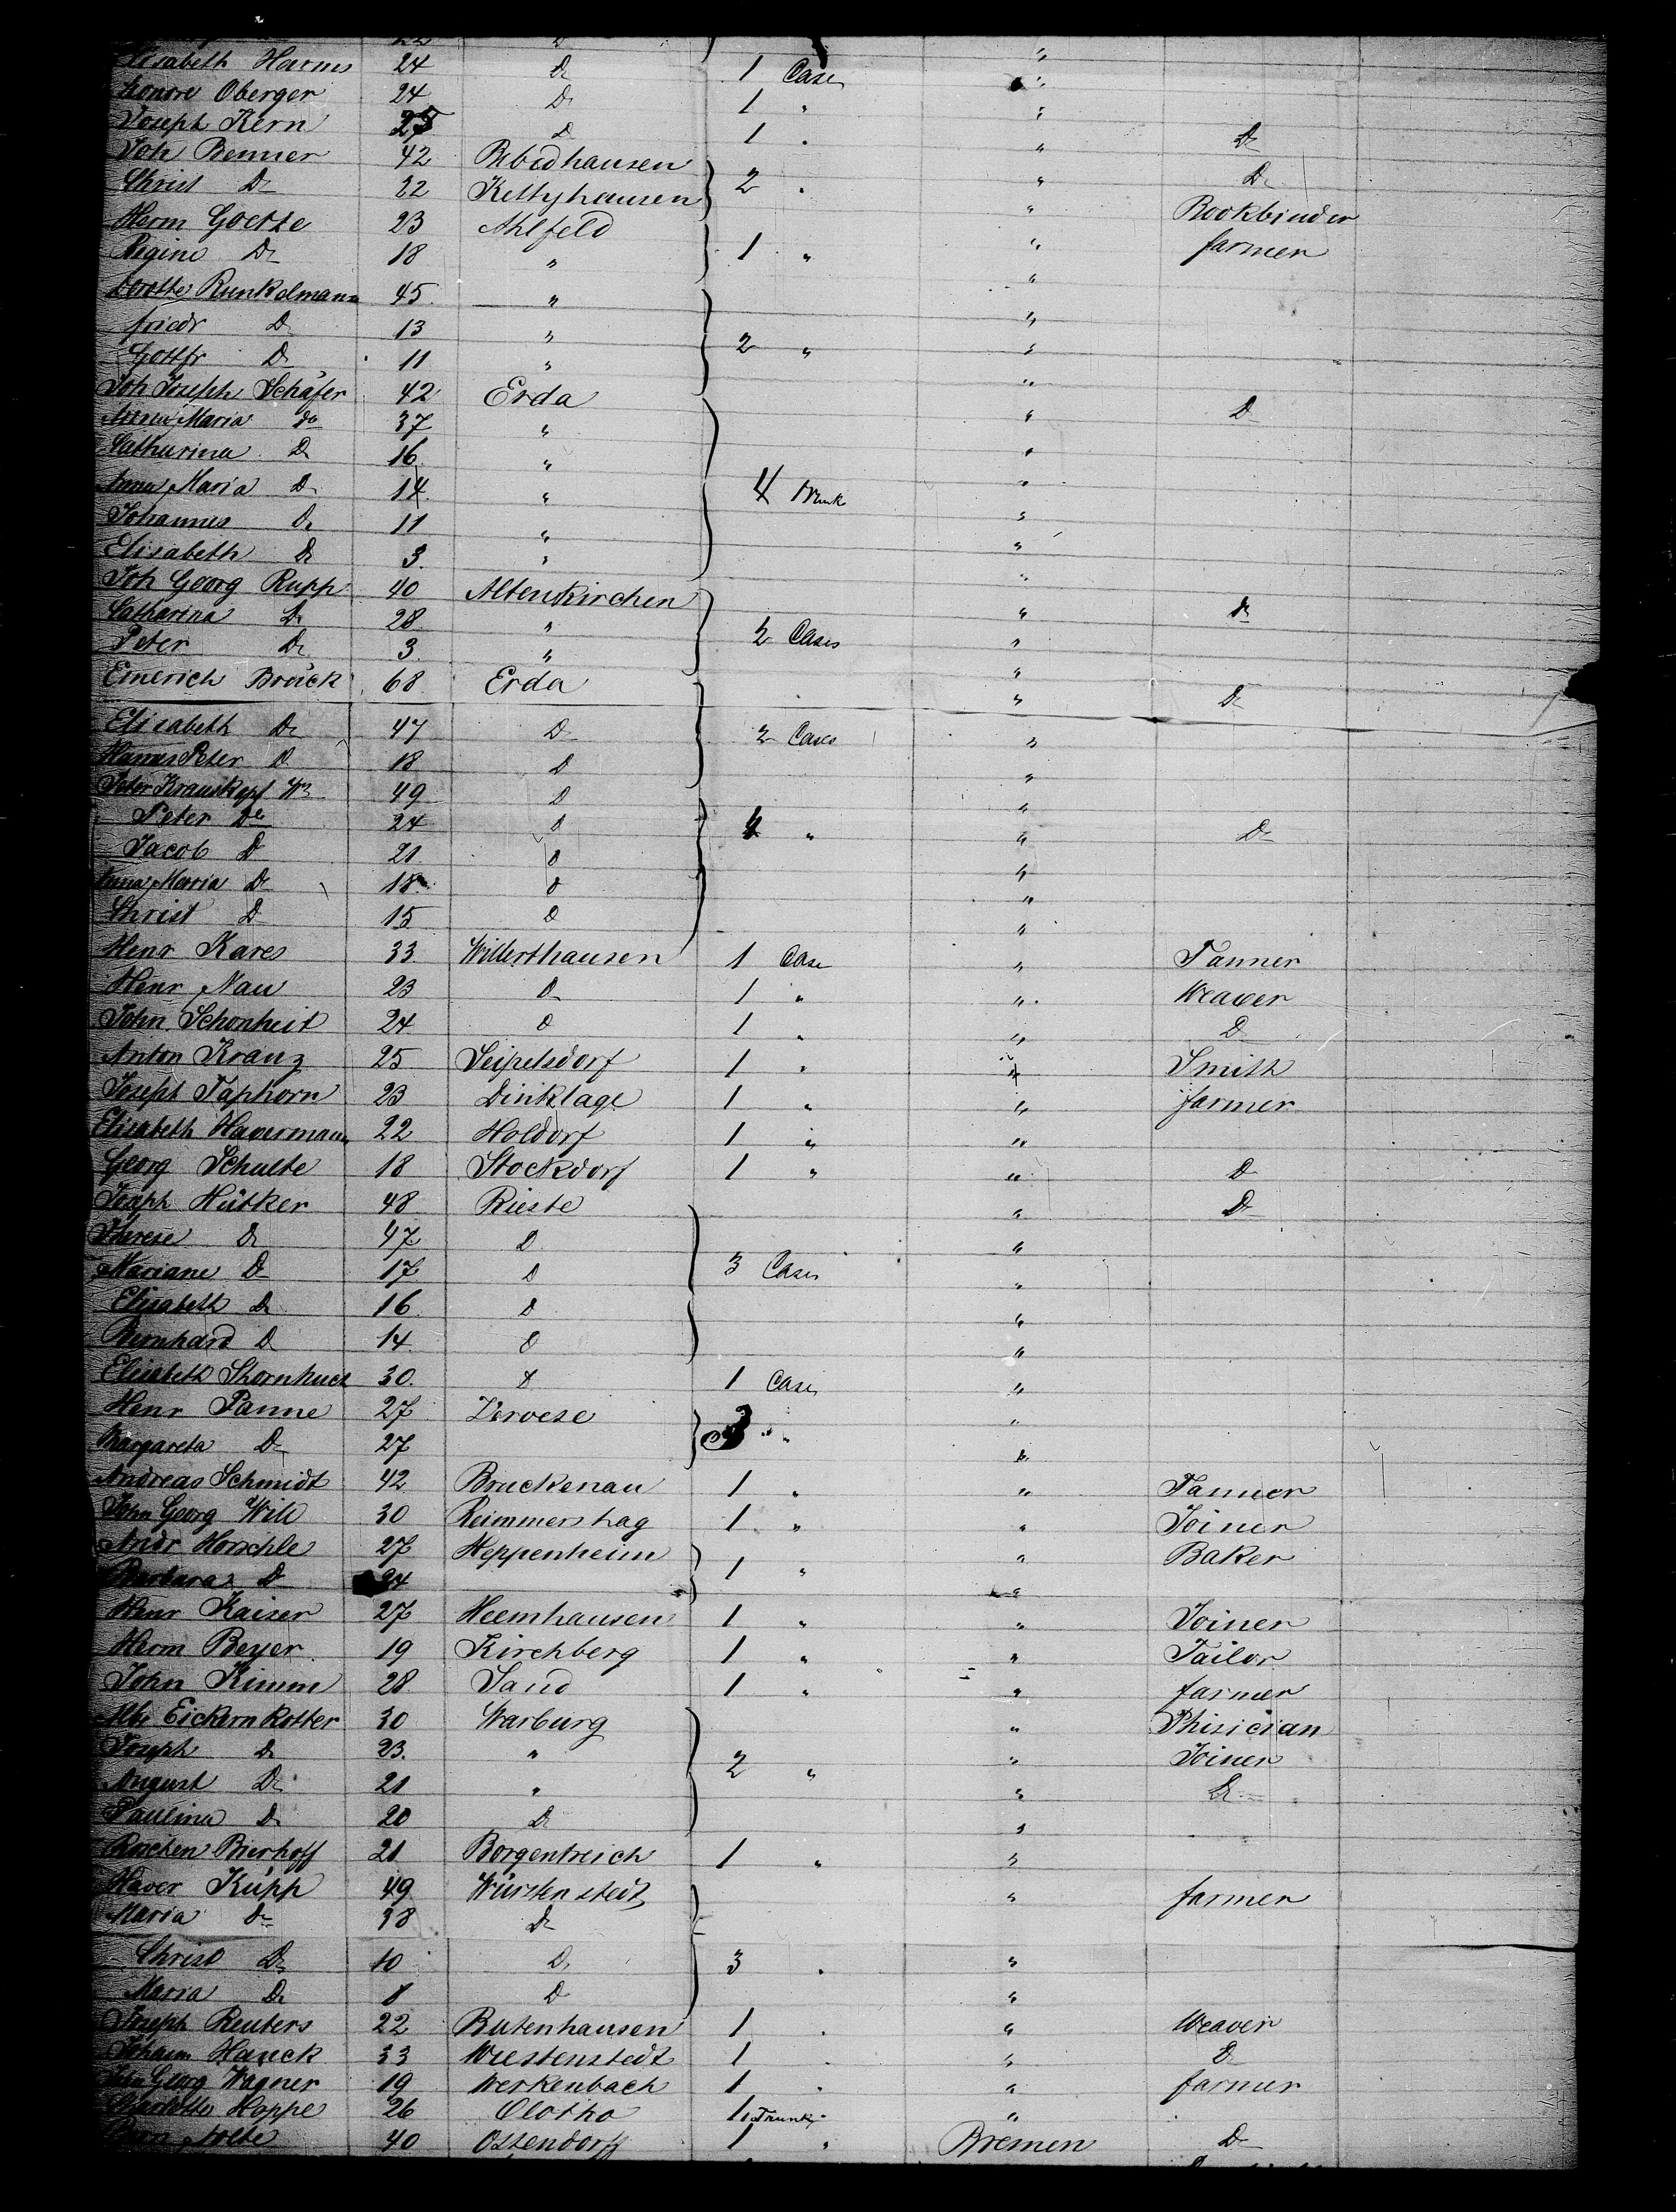 22 D
Elisabeth Harms 24 Do 1 Case "
Honore Oberger 24 Do 1 " "
Joseph Kern 25 D 1 " " Do
Joh Renner 42 Bebedhausen 2 " " Do
Christ Do 22 Kettyhausen " Bookbinder
Herm Goetze 23 Ahlfeld 1 " " farmer
Regine Do 18 " "
Dorothe Runkelmann 45 " "
friedr D 13 " 2 " "
Gottfr D 11 " "
Joh Joseph Schäfer 42 Erda " D
Anna Maria do 37 " "
Catharina D 16 " "
Anna Maria D 14 " 4 Trunk "
Johannes Do 11 " "
Elisabeth Do 3 " "
Joh Georg Rupp 40 Altenkirchen " do
Catharina Do 28 " 2 Cases "
Peter Do 3 " "
Emerich Bröick 68 Erda " Do
Elisabeth Do 47 D 2 Cases "
Hannes Peter D 18 D "
Peter Krauskopf Ww 49 D "
Peter Do 24 D 4 " " Do
Jacob D 21 D "
Anna Maria Do 18 D "
Christ D 15 D "
Henr Kares 33 Willerthausen 1 Case " Tanner
Henr Nau 23 D 1 " " Weaver
John Schonheit 24 D 1 " " D
Anton Kranz 25 Seipelsdorf 1 " " Smith
Joseph Taphorn 23 Dinklage 1 " " farmer
Elisabeth Havermann 22 Holdorf 1 " "
Georg Schulte 18 Stockdorf 1 " " D
Joseph Hütker 48 Rieste " D
Therese D 47 D "
Mariane D 17 D 3 Cases "
Elisabeth D 16 D "
Bernhard D 14 D "
Elisabeth 30 D 1 Case "
Henr Panne 27 Vervese 3 " "
Margareta D 27 "
Andreas Schmidt 42 Bruckenau 1 " " Tanner
John Georg Will 30 Reimmershag 1 " " Joiner
Andr Horschle 27 Heppenheim 1 " " Baker
Barbara D 24 "
Henr Kaiser 27 Heemhausen 1 " " Joiner
Herm Beyer 19 Kirchberg 1 " " Tailor
John Kimm 28 Sand 1 " " farmer
Eickernkotter 30 Warburg " Phisician
Joseph D 23 " 2 " " Joiner
August Do 21 " " Do
Paulina D 20 Do "
Bierhoff 21 Borgentreich 1 " "
Xaver Küpp 49 Würstenstedt " farmer
Maria Do 38 Do
Christ Do 10 D 3 " "
Maria Do 8 D "
Joseph Reuters 22 Butenhausen 1 " " Weaver
Johann Hauck 33 Wuestenstedt 1 " D
John Georg Wagner 19 Werkenbach 1 " " farmer
Charlotte Hoppe 26 Olotho 1 Trunk "
Nolte 40 Ostendorff 1 " Bremen D